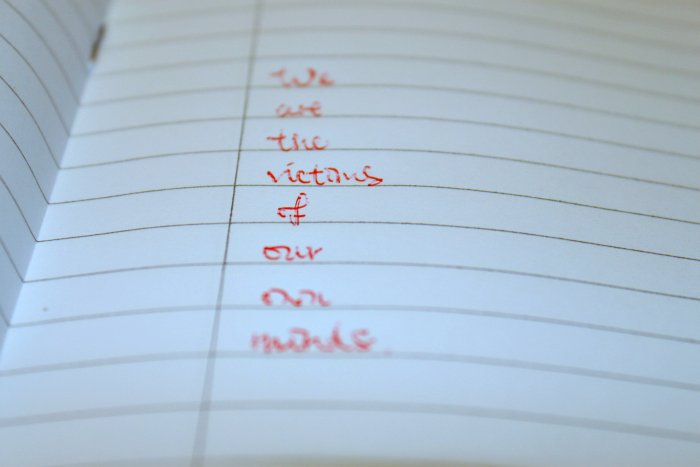 We
are
the
victims
of
our
own
minds.